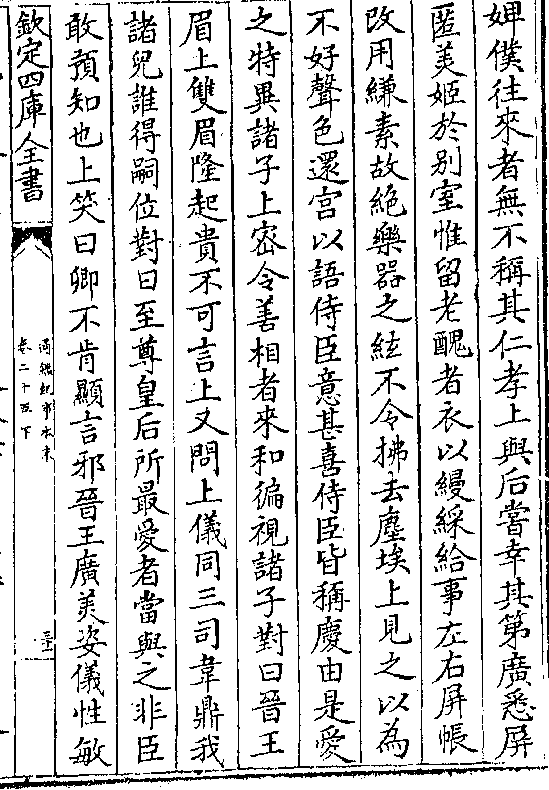 婢僕往來者無不稱其仁孝上與后嘗幸其第廣悉屏
匿美姬於別室惟留老醜者衣以縵綵給事左右屏帳
改用縑素故絶樂器之絃不令拂去塵埃上見之以為
不好聲色還宮以語侍臣意甚喜侍臣皆稱慶由是愛
之特異諸子上密令善相者來和徧視諸子對曰晉王
眉上雙眉隆起貴不可言上又問上儀同三司韋鼎我
諸兒誰得嗣位對曰至尊皇后所最愛者當與之非臣
敢預知也上笑曰卿不肯顯言邪晉王廣美姿儀性敏
欽定四庫全書
通鑑紀事本末
卷二十五下